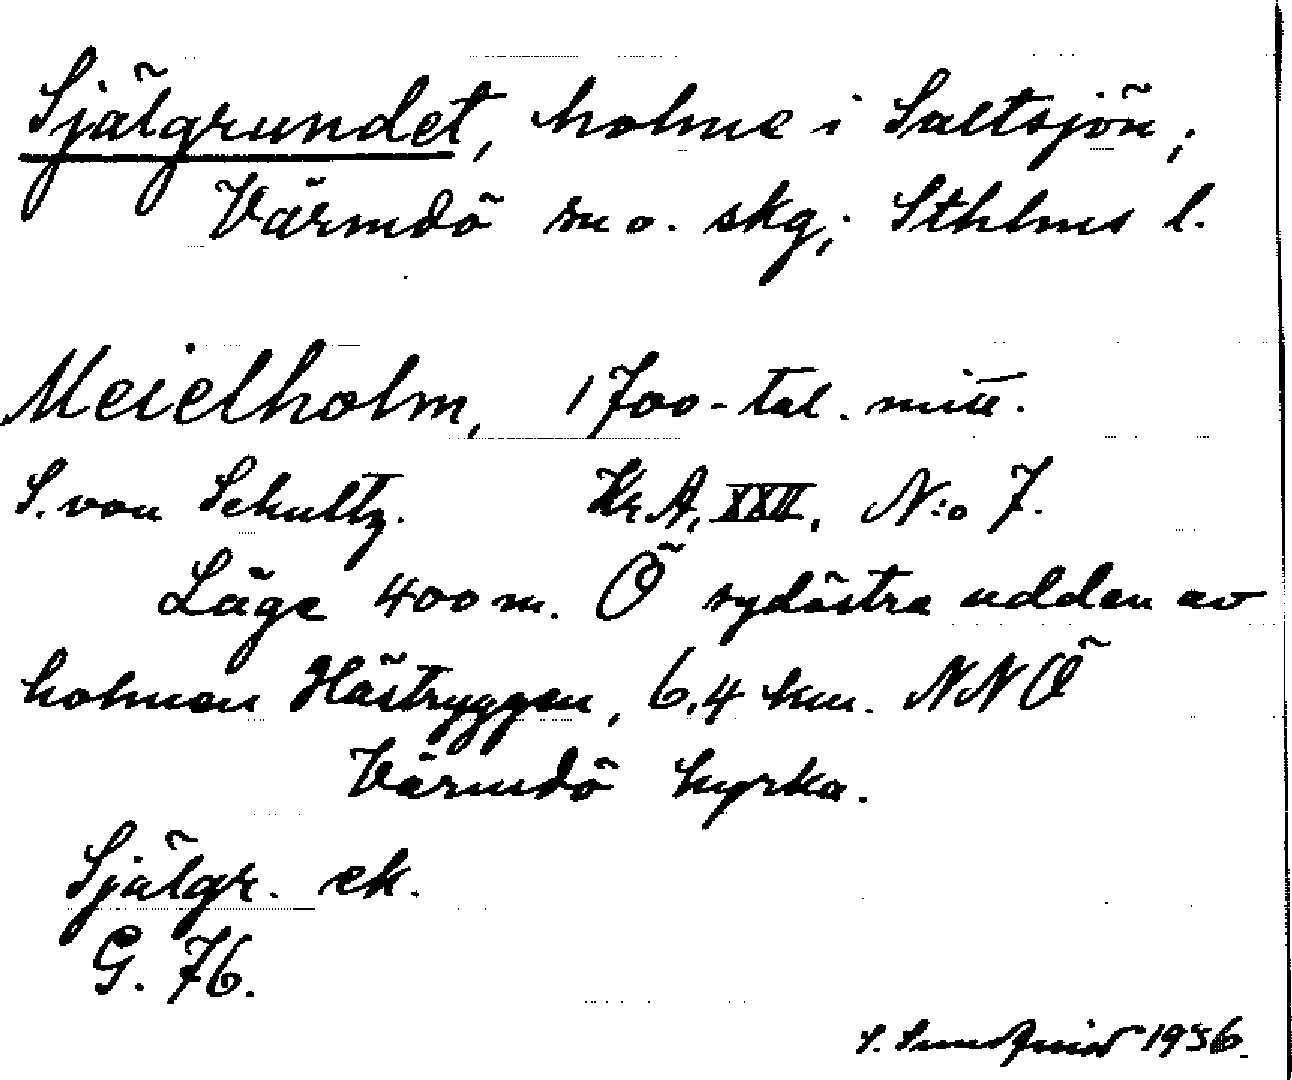 Själgrundet, holme i Saltsjön;
Värmdö sn o. skg; Sthlms l.
Meielholm, 1700-tal. mitt.
S. von Schultz. Kr.A. XXII, N:o 7.
Läge 400 m. Ö sydöstra udden av
holmen Hästryggen, 6,4 km. NNÖ
Värmdö kyrka.
Själgr. ek.
G. 76.
S. Sundqvist 1936.